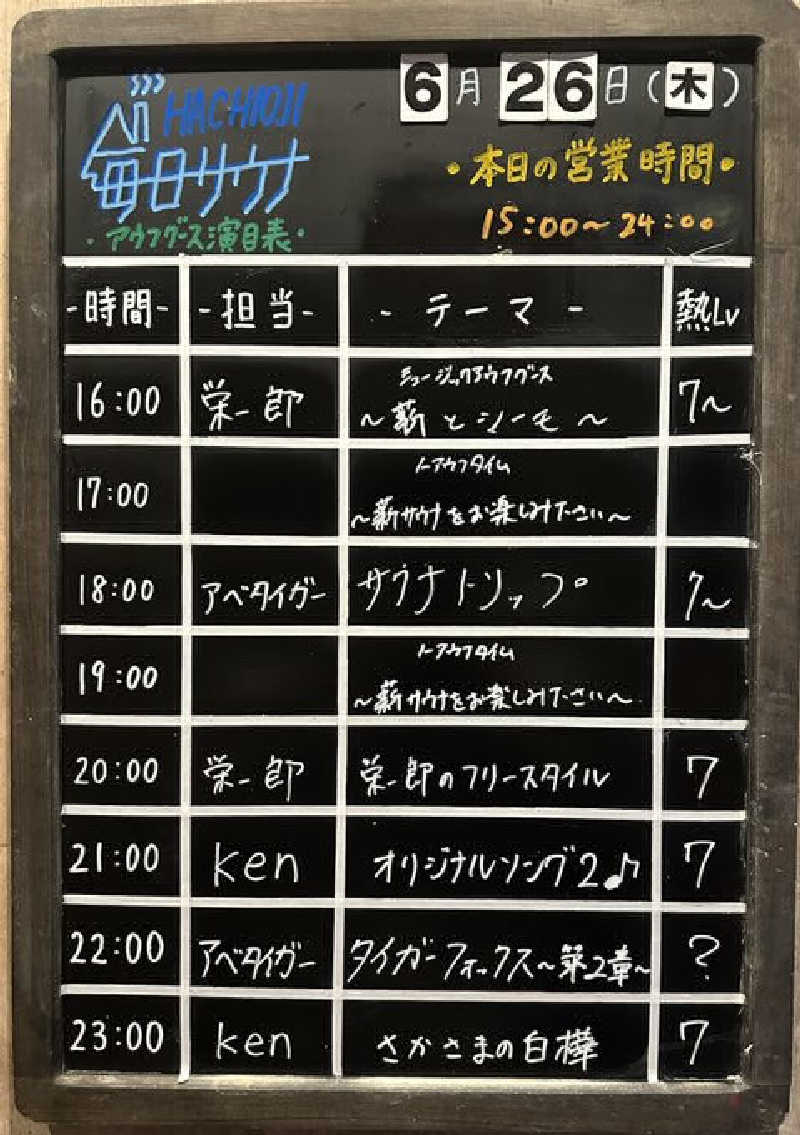 6月26日(木)
HACHIOJI
毎日サウナ
・アウフグース演目表・
・本日の営業時間・
15:00〜24:00
-時間- -担当- -テーマ- 熱Lv
ミュージックアウフグース
16:00 栄一郎 〜薪とシーモ〜 7〜
ノーアウフタイム
17:00 〜薪サウナをお楽しみください〜
18:00 アベタイガー サウナトリップ 7〜
ノーアウフタイム
19:00 〜薪サウナをお楽しみください〜
20:00 栄一郎 栄一郎のフリースタイル 7
21:00 ken オリジナルソング2♪ 7
22:00 アベタイガー タイガーフォックス〜第2章〜 ?
23:00 ken さかさまの白樺 7